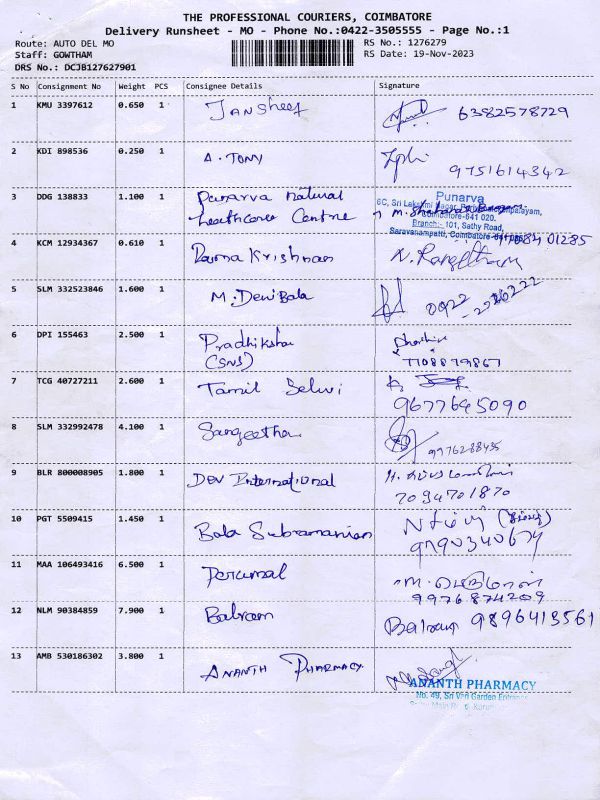 THE PROFESSIONAL COURIERS, COIMBATORE
Delivery Runsheet - MO - Phone No.:0422-3505555 - Page No.:1
Route: AUTO DEL MO RS No.: 1276279
Staff: GOWTHAM RS Date: 19-Nov-2023
DRS No.: DCJB127627901
S No Consignment No Weight PCS Consignee Details Signature
1 KMU 3397612 0.650 1 Jansheef 6382578729
2 KDI 898536 0.250 1 A. TONY 9751614342
3 DDG 138833 1.100 1 Punarva natural
healthcare Centre
Punarva
6C, Sri Lakshmi Nagar,
Coimbatore-641 020.
Branch:- 101, Sathy Road,
Saravanampatti, Coimbatore
4 KCM 12934367 0.610 1 Rama Krishnan
5 SLM 332523846 1.600 1 M. Devi Bala 0422
6 DPI 155463 2.500 1 Pradhiksha
(SNS)
7708879867
7 TCG 40727211 2.600 1 Tamil Selvi
9677645090
8 SLM 332992478 4.100 1 Sangeetha
9 BLR 800008905 1.800 1 Dev International
7094701870
10 PGT 5509415 1.450 1 Bala Subramanian
9790340674
11 MAA 106493416 6.500 1 Perumal
9976874209
12 NLM 90384859 7.900 1 Balram Balram 9896413561
13 AMB 530186302 3.800 1 ANANTH PHARMACY
ANANTH PHARMACY
No. 49, Sri Vari Garden Entrance